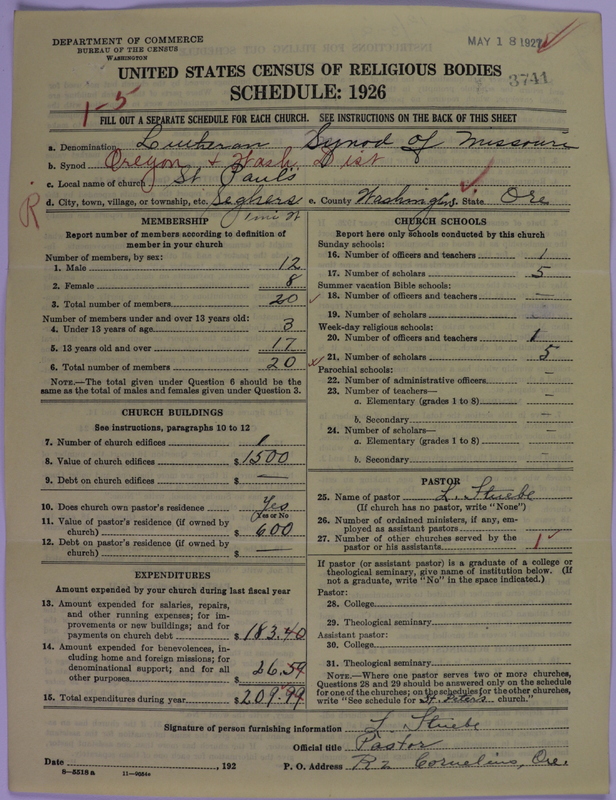 DEPARTMENT OF COMMERCE
BUREAU OF THE CENSUS
WASHINGTON
MAY 18 1927
UNITED STATES CENSUS OF RELIGIOUS BODIES
SCHEDULE: 1926
3741
1-5
FILL OUT A SEPARATE SCHEDULE FOR EACH CHURCH. SEE INSTRUCTIONS ON THE BACK OF THIS SHEET
a. Denomination Lutheran Synod of Missouri
b. Synod Oregon & Wash. Dist
c. Local name of church St Paul's
d. City, town, village, or township, etc. Seghers e. County Washington State Ore
R
MEMBERSHIP
Report number of members according to definition of member in your church
Number of members, by sex:
1. Male 12
2. Female 8
3. Total number of members 20
Number of members under and over 13 years old:
4. Under 13 years of age 3
5. 13 years old and over 17
6. Total number of members 20
NOTE.—The total given under Question 6 should be the same as the total of males and females given under Question 3.
CHURCH BUILDINGS
See instructions, paragraphs 10 to 12
7. Number of church edifices 1
8. Value of church edifices $ 1500
9. Debt on church edifices $ —
10. Does church own pastor's residence Yes
(Yes or No)
11. Value of pastor's residence (if owned by church) $ 600
12. Debt on pastor's residence (if owned by church) $ —
EXPENDITURES
Amount expended by your church during last fiscal year
13. Amount expended for salaries, repairs, and other running expenses; for improvements or new buildings; and for payments on church debt $ 183.40
14. Amount expended for benevolences, including home and foreign missions; for denominational support; and for all other purposes $ 26.59
15. Total expenditures during year $ 209.99
CHURCH SCHOOLS
Report here only schools conducted by this church
Sunday schools:
16. Number of officers and teachers 1
17. Number of scholars 5
Summer vacation Bible schools:
18. Number of officers and teachers —
19. Number of scholars
Week-day religious schools:
20. Number of officers and teachers 1
21. Number of scholars 5
Parochial schools:
22. Number of administrative officers —
23. Number of teachers—
a. Elementary (grades 1 to 8) —
b. Secondary —
24. Number of scholars—
a. Elementary (grades 1 to 8) —
b. Secondary —
PASTOR
25. Name of pastor L. Stuebe
(If church has no pastor, write "None")
26. Number of ordained ministers, if any, employed as assistant pastors —
27. Number of other churches served by the pastor or his assistants 1
If pastor (or assistant pastor) is a graduate of a college or theological seminary, give name of institution below. (If not a graduate, write "No" in the space indicated.)
Pastor:
28. College
29. Theological seminary
Assistant pastor:
30. College
31. Theological seminary
NOTE.—Where one pastor serves two or more churches, Questions 28 and 29 should be answered only on the schedule for one of the churches; on the schedules for the other churches, write "See schedule for St. Peters church."
Signature of person furnishing information L. Stuebe
Official title Pastor
Date , 192 P. O. Address R 2 Cornelius, Ore.
8—5518 a 11—9034a